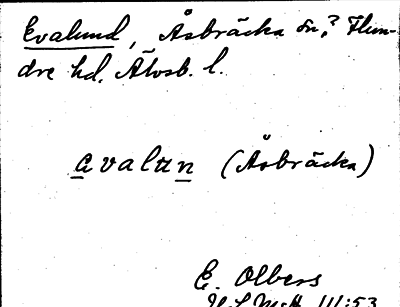 Evalund, Åsbräcka sn,? Flun-
dre hd. Älvsb. l.
avalun (Åsbräcka)
E. Olbers
III:53